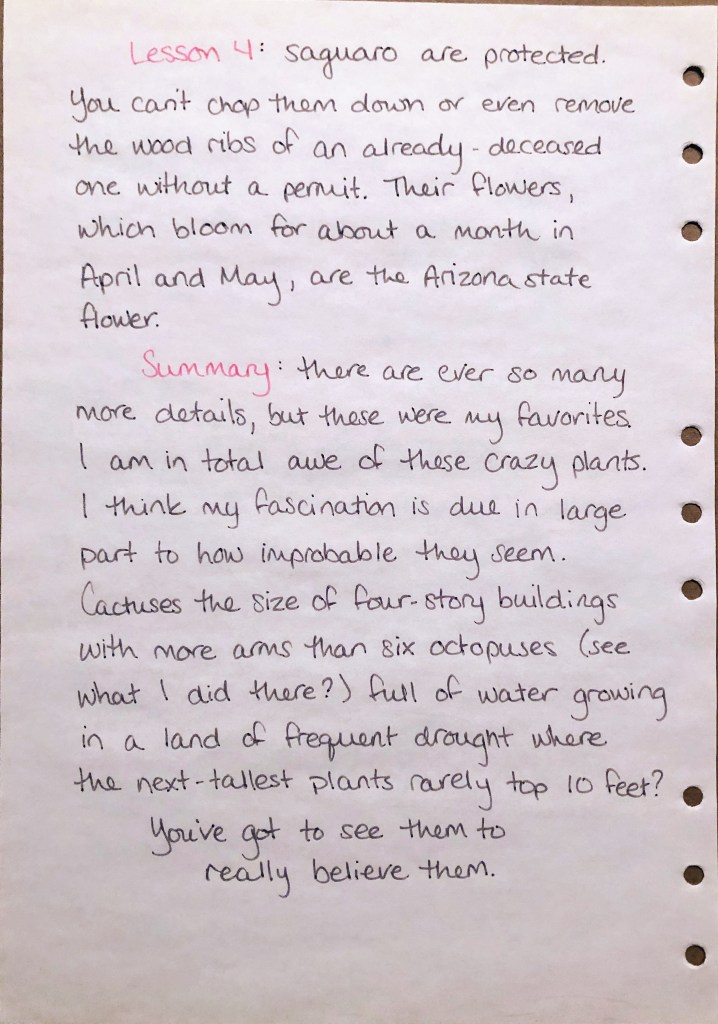 Lesson 4: saguaro are protected.
You can't chop them down or even remove
the wood ribs of an already-deceased
one without a permit. Their flowers,
which bloom for about a month in
April and May, are the Arizona state
flower.
Summary: there are ever so many
more details, but these were my favorites.
I am in total awe of these crazy plants.
I think my fascination is due in large
part to how improbable they seem.
Cactuses the size of four-story buildings
with more arms than six octopuses (see
what I did there?) full of water growing
in a land of frequent drought where
the next-tallest plants rarely top 10 feet?
You've got to see them to
really believe them.